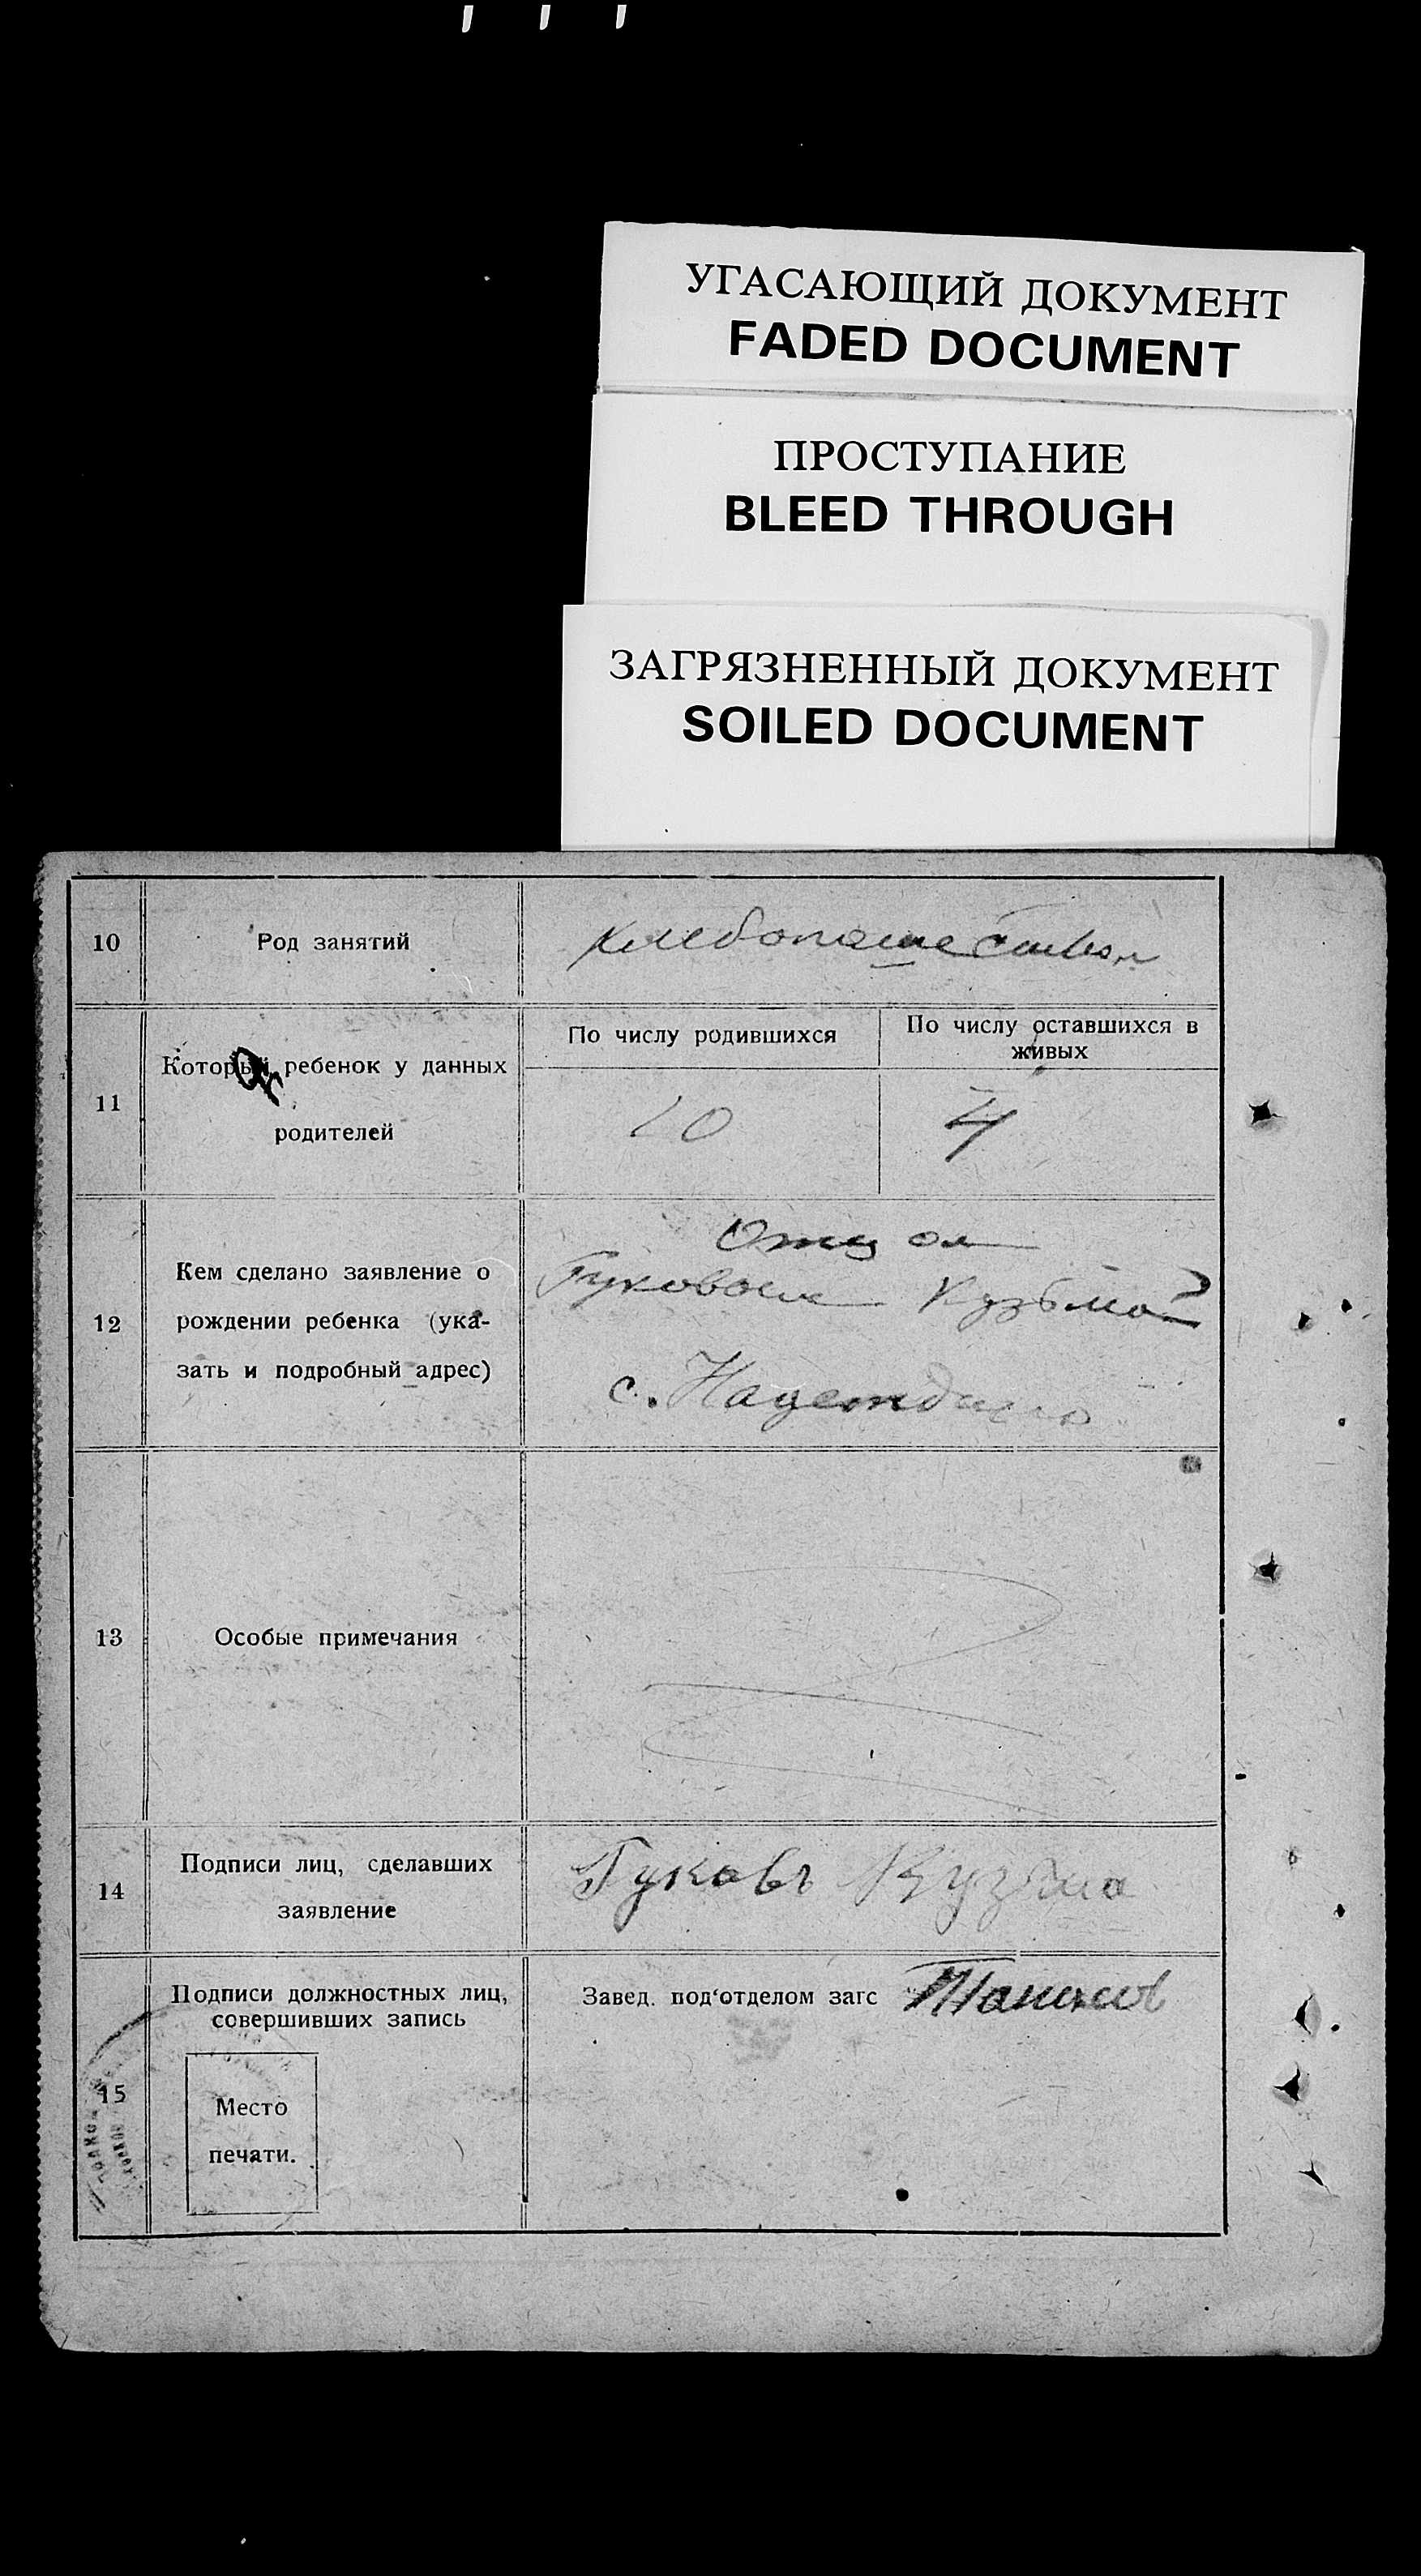 УГАСАЮЩИЙ ДОКУМЕНТ
FADED DOCUMENT
ПРОСТУПАНИЕ
BLEED THROUGH
ЗАГРЯЗНЕННЫЙ ДОКУМЕНТ
SOILED DOCUMENT
10
Род занятий
хлебопашеством
11
Который ребенок у данных
родителей
По числу родившихся
10
По числу оставшихся в
живых
4
12
Кем сделано заявление о
рождении ребенка (ука-
зать и подробный адрес)
Отцом
Гуковым Кузьмой
с. Надеждино
13
Особые примечания
14
Подписи лиц, сделавших
заявление
Гуковъ Кузьма
15
Подписи должностных лиц,
совершивших запись
Место
печати.
Завед. под'отделом загс